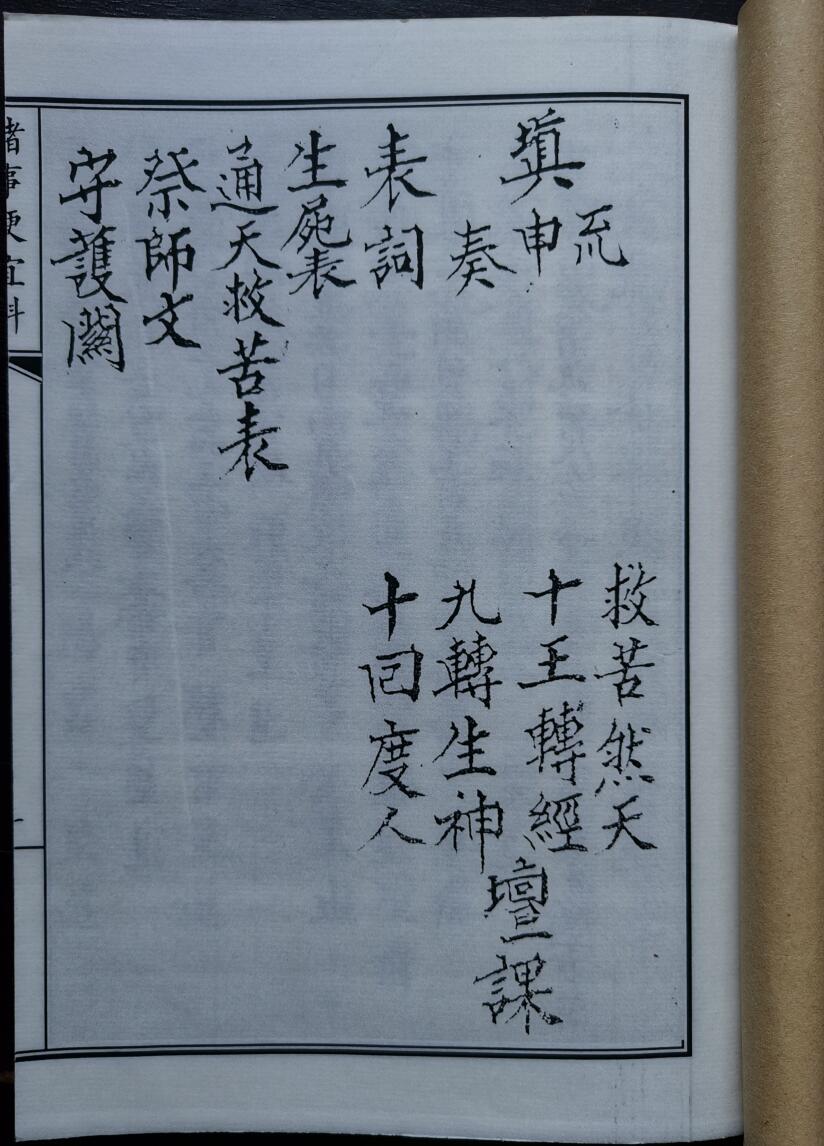 填
㐬
申
奏
表詞
生屍表
通天救苦表
祭師文
守護關
救苦然天
十王轉經
九轉生神
十囘度人
壇課
諸事便宜科